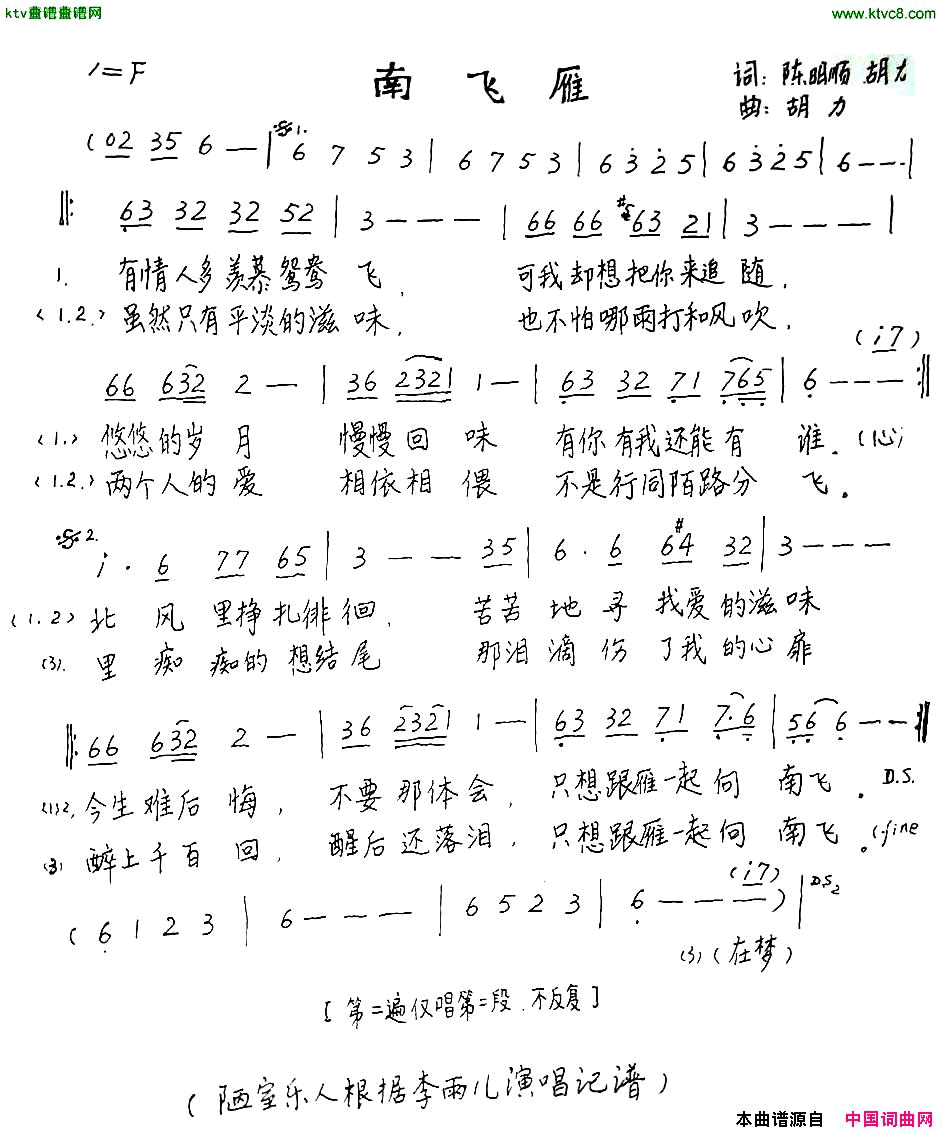 ktv查谱查谱网 www.ktvc8.com
1=F 南飞雁 词：陈明顺 胡力
曲：胡 力
(02 35 6 — | 𝄋1. 6 7 5 3 | 6 7 5 3 | 6 3̇ 2̇ 5 | 6 3̇ 2̇ 5 | 6 - - - |
‖: 6̣3 32 32 52 | 3 - - - | 66 66 #563 21 | 3 - - - |
1. 有情人多羡慕鸳鸯 飞， 可我却想把你来追随，
(1.2.) 虽然只有平淡的滋味， 也不怕哪雨打和风吹，
(i7)
66 632 2 — | 36 2321 1 — | 6̣3 32 7̣1 7̣6̣5̣ | 6̣ - - - :‖
(1.) 悠悠的岁 月 慢慢回 味 有你有我还能有 谁．(心)
(1.2.) 两个人的 爱 相依相 偎 不是行同陌路分 飞。
𝄋2. i · 6 77 65 | 3 - - 35 | 6 · 6 6#4 32 | 3 - - -
(1.2) 北 风 里挣扎徘徊， 苦苦 地 寻 我爱的滋味
(3). 里 痴 痴的 想结尾 那泪 滴 伤 了我 的心 扉
‖: 66 632 2 — | 36 2321 1 — | 6̣3 32 7̣1 7̣·6̣ | 5̣6̣ 6̣ - - :‖
(1)2, 今生 难后 悔， 不要 那体会， 只想跟雁一起向 南飞． D.S.
(3) 醉上千百 回， 醒后还落泪， 只想跟雁一起向 南飞。(fine
(i7)
(6̣ 1 2 3 | 6 - - - | 6 5 2 3 | 6̣ - - - ) | D.S2
(3) (在梦)
[第二遍仅唱第二段．不反复]
(陋室乐人根据李雨儿演唱记谱)
本曲谱源自 中国词曲网